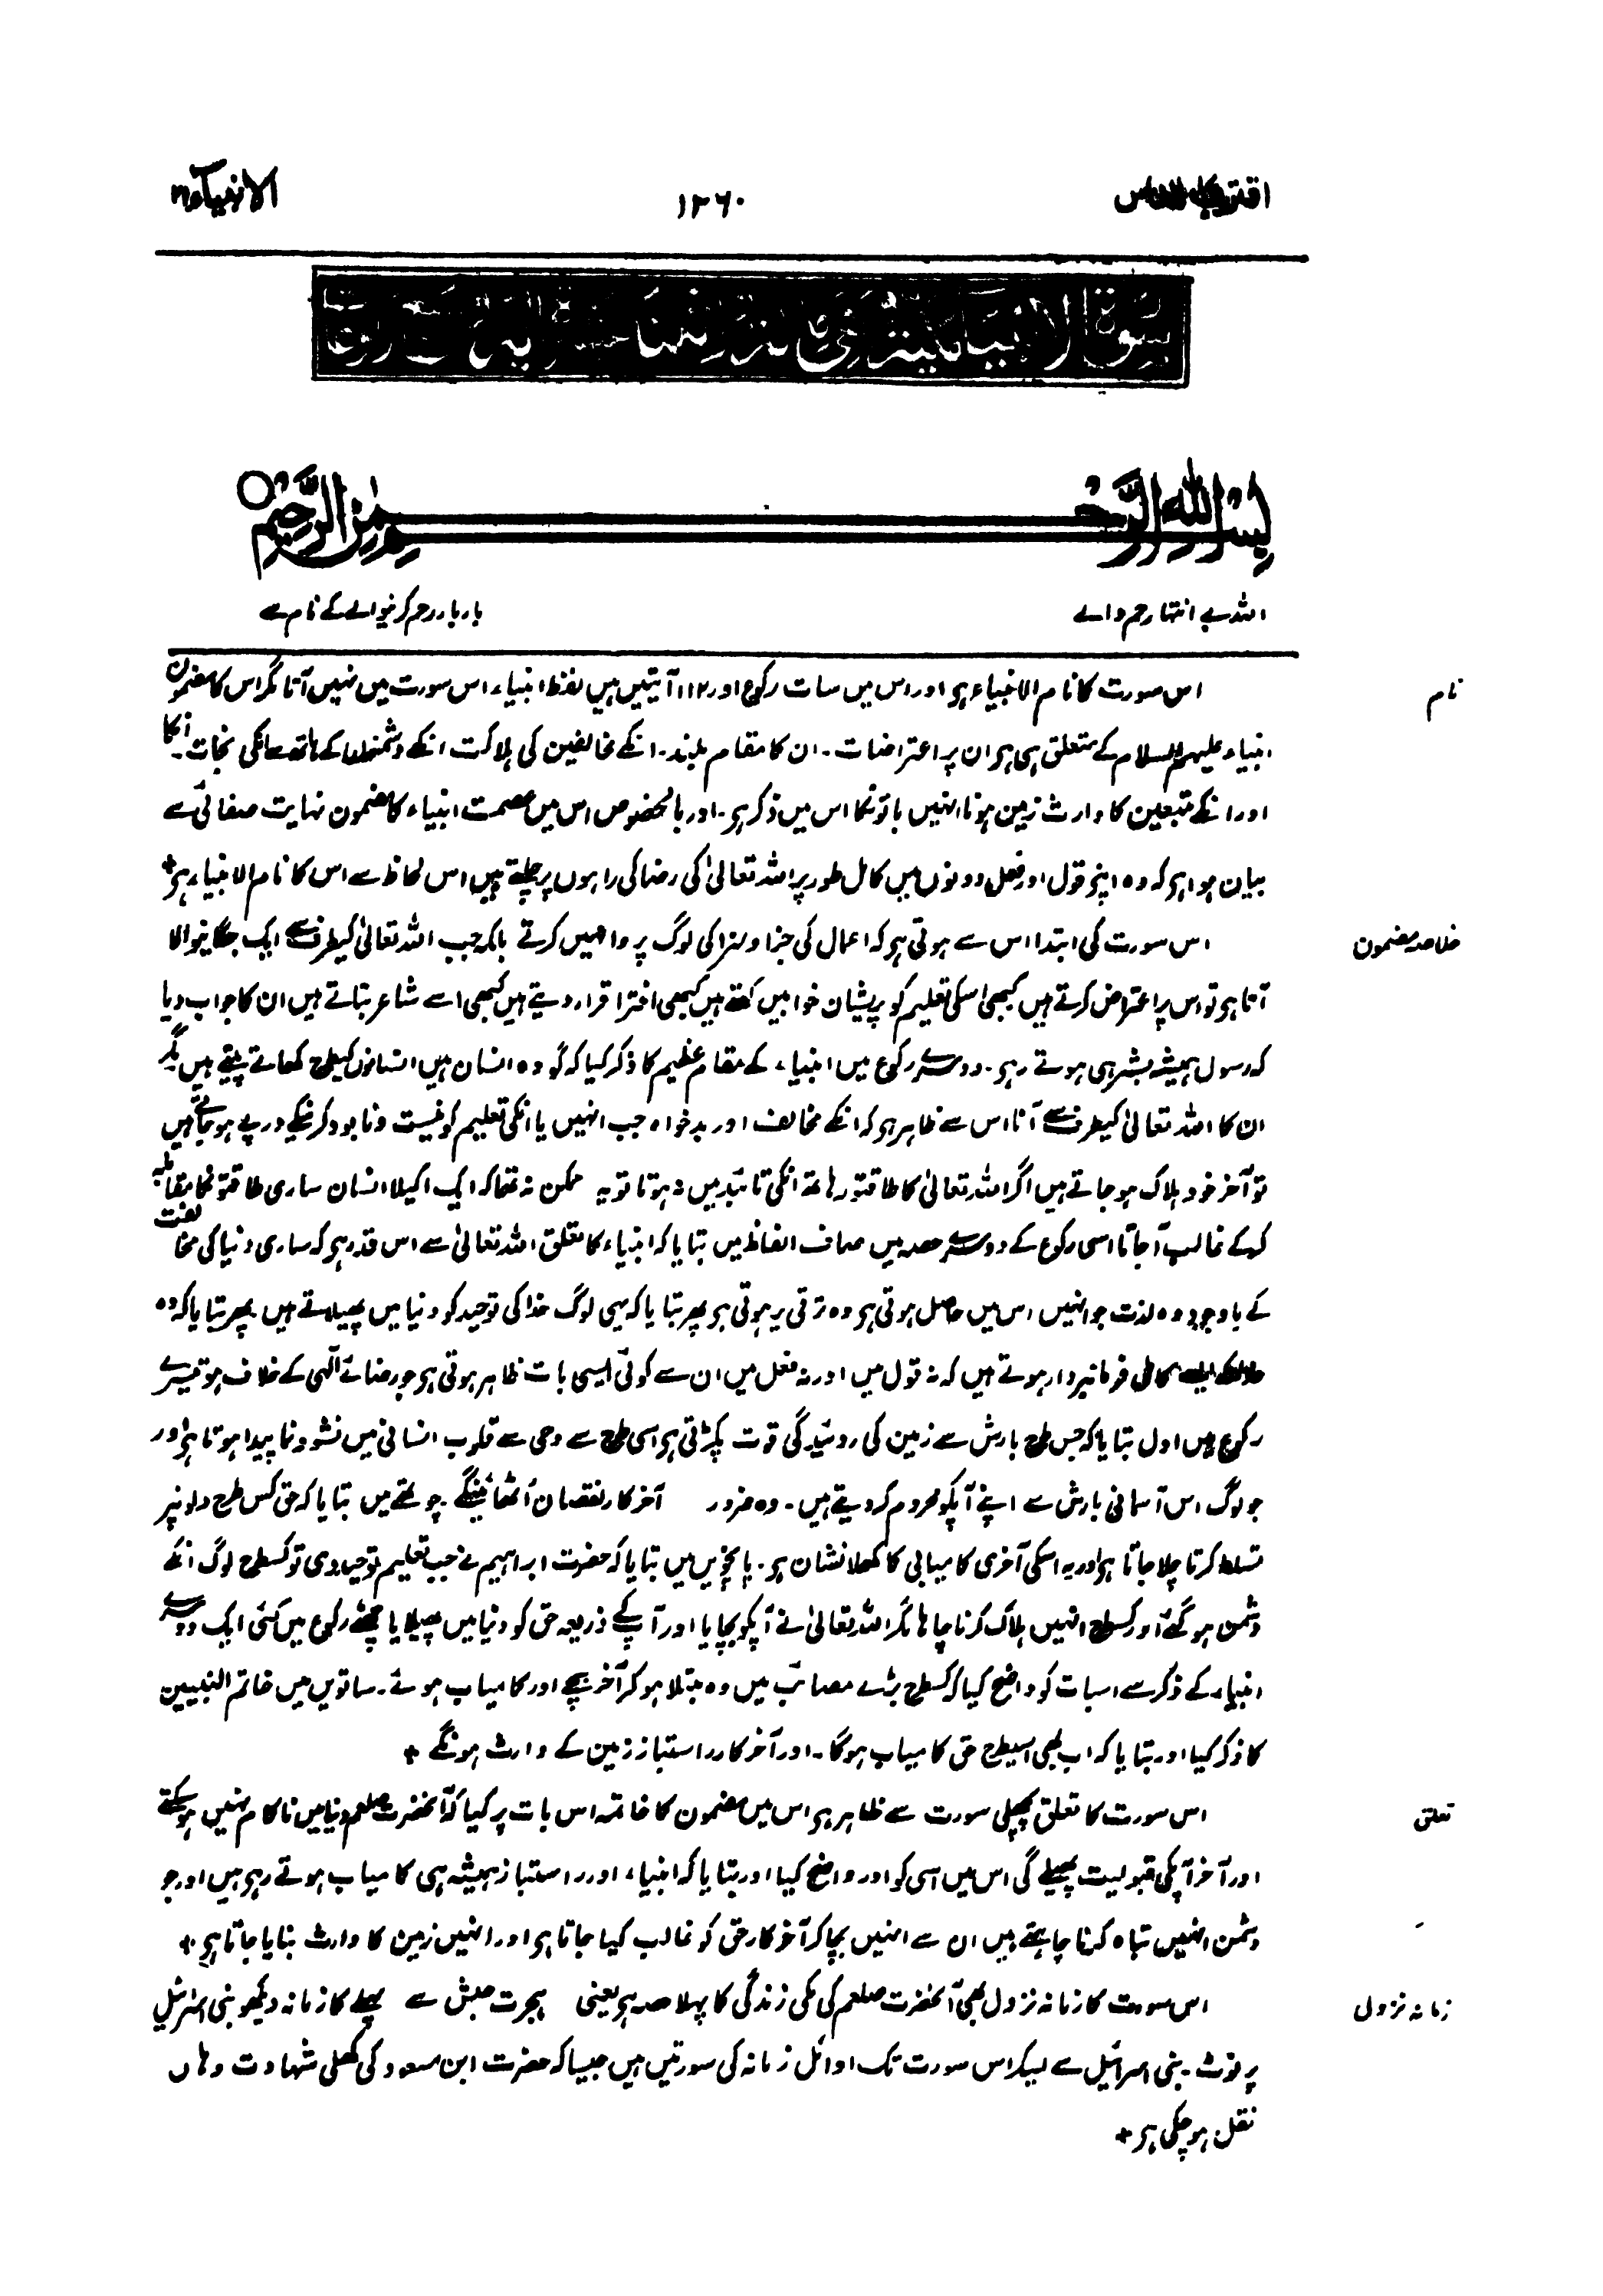 اقترب للناس ۱۲۶۰ الانبیآء
بِسْمِ اللهِ الرَّحْمٰنِ الرَّحِيْمِ
اللہ بے انتہا رحم والے بار بار رحم کرنیوالے کے نام سے
نام
اس سورت کا نام الانبیاء ہر اور اس میں سات رکوع اور ۱۱۲ آیتیں ہیں لفظ انبیاء اس سورت میں نہیں آتا مگر اس کا مضمون
انبیاء علیہم السلام کے متعلق ہی ہر ان پر اعتراضات ۔ ان کا مقام بلند ۔ انکے مخالفین کی ہلاکت انکے دشمنوں کے ہاتھ سے انکی نجات ۔ انکا
اور انکے متبعین کا وارث زمین ہونا انہیں باتونکا اس میں ذکر ہر ۔ اور بالخصوص اس میں عصمت انبیاء کا مضمون نہایت صفائی سے
بیان ہوا ہر کہ وہ اپنے قول اور فعل دونوں میں کامل طور پر اللہ تعالیٰ کی رضا کی راہوں پر چلتے ہیں اس لحاظ سے اس کا نام الانبیاء ہر +
خلاصہ مضمون
اس سورت کی ابتدا اس سے ہوتی ہر کہ اعمال کی جزا و سزا کی لوگ پروا نہیں کرتے بلکہ جب اللہ تعالیٰ کیطرف سے ایک جگانیوالا
آتا ہر تو اس پر اعتراض کرتے ہیں کبھی اسکی تعلیم کو پریشان خوابیں کہتے ہیں کبھی افترا قرار دیتے ہیں کبھی اسے شاعر بتاتے ہیں ان کا جواب دیا
کہ رسول ہمیشہ بشر ہی ہوتے رہر ۔ دوسرے رکوع میں انبیاء کے مقام عظیم کا ذکر کیا کہ گو وہ انسان ہیں انسانوں کیطرح کھاتے پیتے ہیں مگر
ان کا اللہ تعالیٰ کیطرف سے آنا اس سے ظاہر ہر کہ انکے مخالف اور بدخواہ جب انہیں یا انکی تعلیم کو نیست و نابود کرنیکے درپے ہو جاتے ہیں
تو آخر خود ہلاک ہو جاتے ہیں اگر اللہ تعالیٰ کا طاقتور ہاتھ انکی تائید میں نہ ہوتا تو یہ ممکن نہ تھا کہ ایک اکیلا انسان ساری طاقتونکا مقابلہ
کرکے غالب آجاتا اسی رکوع کے دوسرے حصہ میں صاف الفاظ میں بتایا کہ انبیاء کا تعلق اللہ تعالیٰ سے اس قدر ہر کہ ساری دنیا کی مخالفت
کے باوجود وہ لذت جو انہیں اس میں حاصل ہوتی ہر وہ ترقی پر ہوتی ہر پھر بتایا کہ یہی لوگ خدا کی توحید کو دنیا میں پھیلاتے ہیں پھر بتایا کہ وہ
کامل فرمانبردار ہوتے ہیں کہ نہ قول میں اور نہ فعل میں ان سے کوئی ایسی بات ظاہر ہوتی ہر جو رضائے الٰہی کے خلاف ہو تیسرے
رکوع میں اول بتایا کہ جس طرح بارش سے زمین کی روئیدگی قوت پکڑتی ہر اسی طرح سے وحی سے قلوب انسانی میں نشو و نما پیدا ہوتا ہر اور
جو لوگ اس آسمانی بارش سے اپنے آپکو محروم کر دیتے ہیں ۔ وہ ضرور آخر کار نقصان اُٹھائینگے ۔ چوتھے میں بتایا کہ حق کس طرح دلونپر
تسلط کرتا چلا جاتا ہر اور یہ اسکی آخری کامیابی کا کھلا نشان ہر ۔ پانچویں میں بتایا کہ حضرت ابراہیم نے جب تعلیم توحید دی تو کسطرح لوگ انکے
دشمن ہو گئے اور کسطرح انہیں ہلاک کرنا چاہا مگر اللہ تعالیٰ نے آپکو بچایا اور آپ کے ذریعہ حق کو دنیا میں پھیلایا چھٹے رکوع میں کئی ایک دوسرے
انبیاء کے ذکر سے اسبات کو واضح کیا کہ کسطرح بڑے مصائب میں وہ مبتلا ہو کر آخر بچے اور کامیاب ہوئے ۔ ساتویں میں خاتم النبیین
کا ذکر کیا اور بتایا کہ اب بھی اسیطرح حق کامیاب ہوگا ۔ اور آخر کار راستباز زمین کے وارث ہونگے +
تعلق
اس سورت کا تعلق پچھلی سورت سے ظاہر ہر اس میں مضمون کا خاتمہ اس بات پر کیا کہ آنحضرت صلعم دنیا میں ناکام نہیں ہو سکتے
اور آخر آپکی قبولیت پھیلے گی اس میں اسی کو اور واضح کیا اور بتایا کہ انبیاء اور راستباز ہمیشہ ہی کامیاب ہوتے رہر ہیں اور جو
دشمن انہیں تباہ کرنا چاہتے ہیں ان سے انہیں بچا کر آخر کار حق کو غالب کیا جاتا ہر اور انہیں زمین کا وارث بنایا جاتا ہر +
زمانہ نزول
اس سورت کا زمانہ نزول بھی آنحضرت صلعم کی مکی زندگی کا پہلا حصہ ہر یعنی ہجرت حبش سے پہلے کا زمانہ دیکھو بنی اسرائیل
پر نوٹ ۔ بنی اسرائیل سے لیکر اس سورت تک اوائل زمانہ کی سورتیں ہیں جیسا کہ حضرت ابن مسعود کی کھلی شہادت وہاں
نقل ہو چکی ہر +